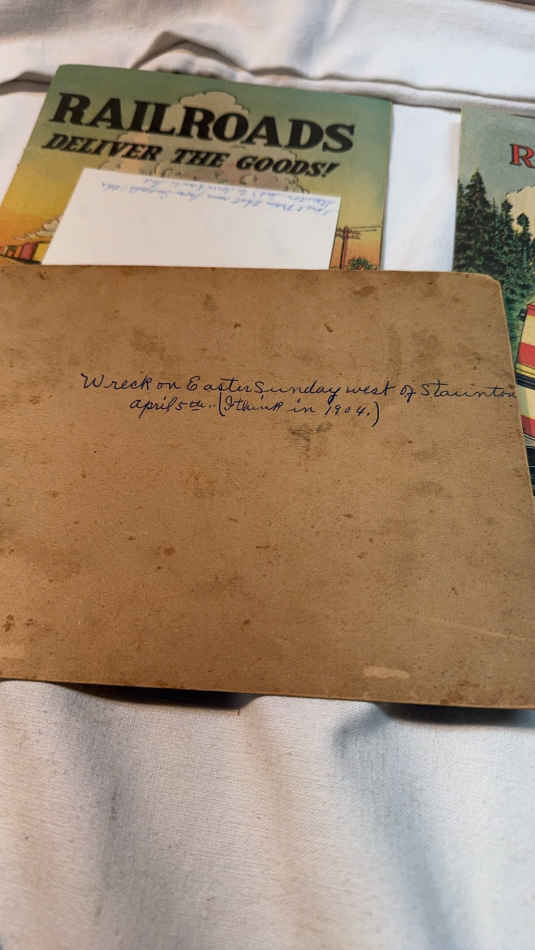 RAILROADS
DELIVER THE GOODS!
R
Wreck on Easter Sunday west of Staunton
april 5th.. (I think in 1904.)